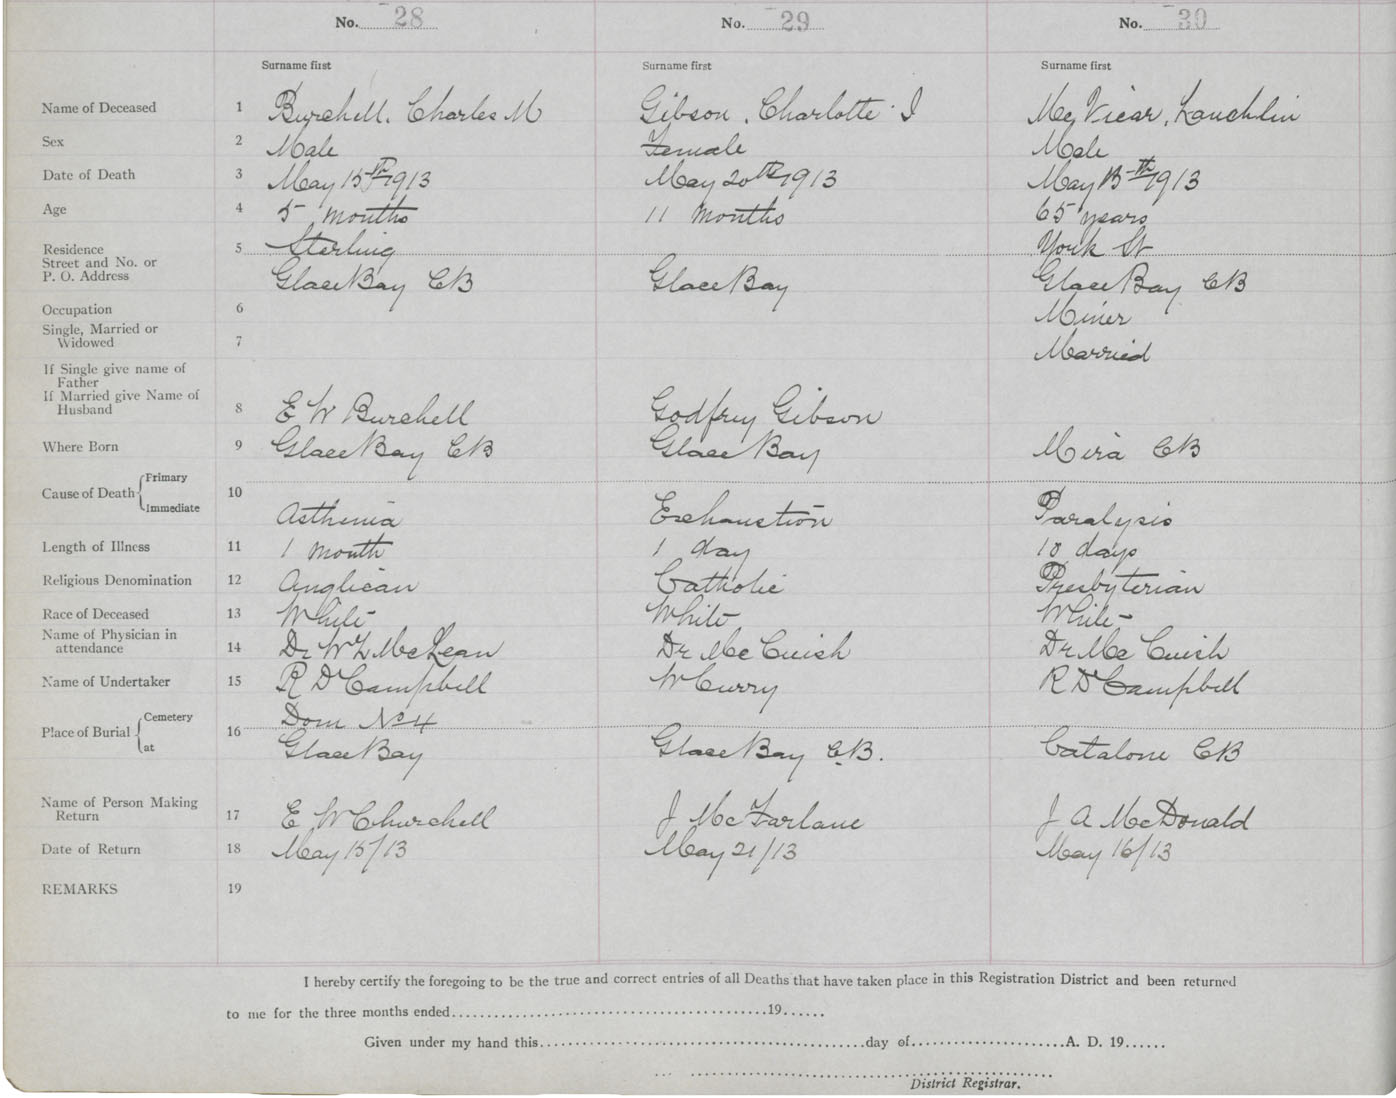 No. 28 No. 29 No. 30
Surname first Surname first Surname first
Name of Deceased 1 Burchell, Charles M Gibson, Charlotte I McVicar, Lauchlin
Sex 2 Male Female Male
Date of Death 3 May 15th 1913 May 20th 1913 May 15th 1913
Age 4 5 months 11 months 65 years
Residence 5 Sterling York St
Street and No. or
P. O. Address Glace Bay CB Glace Bay Glace Bay CB
Occupation 6 Miner
Single, Married or
Widowed 7 Married
If Single give name of
Father
If Married give Name of
Husband 8 E W Burchell Godfrey Gibson
Where Born 9 Glace Bay CB Glace Bay Mira CB
Cause of Death Primary 10
Immediate Asthenia Exhaustion Paralysis
Length of Illness 11 1 month 1 day 10 days
Religious Denomination 12 Anglican Catholic Presbyterian
Race of Deceased 13 White White White
Name of Physician in
attendance 14 Dr McLean Dr McCuish Dr McCuish
Name of Undertaker 15 R D Campbell W Curry R D Campbell
Place of Burial Cemetery 16 Dom No 4
at Glace Bay Glace Bay C.B. Catalone CB
Name of Person Making
Return 17 E W Churchell J McFarlane J A McDonald
Date of Return 18 May 15/13 May 21/13 May 16/13
REMARKS 19
I hereby certify the foregoing to be the true and correct entries of all Deaths that have taken place in this Registration District and been returned
to me for the three months ended 19
Given under my hand this day of A. D. 19
District Registrar.